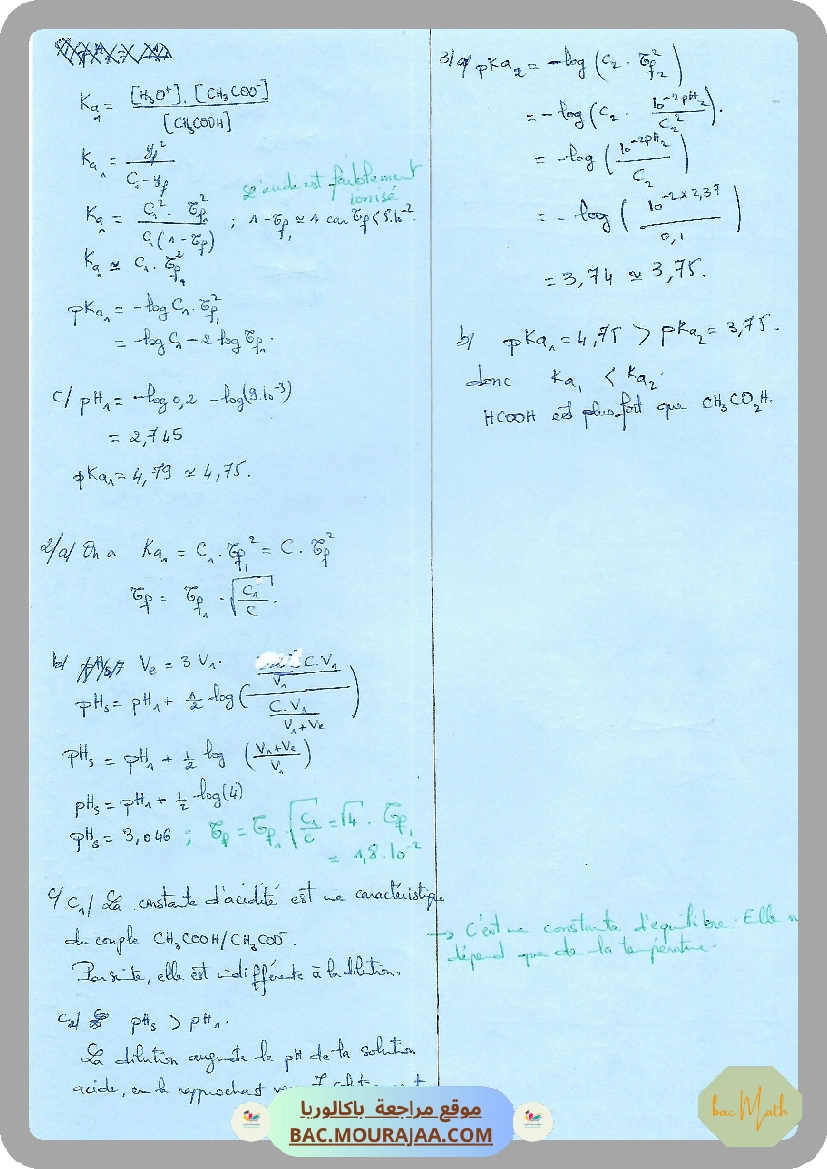 Ka₁ = [H₃O⁺].[CH₃COO⁻] / [CH₃COOH]
Ka₁ = y_f² / (C₁ - y_f)
L'acide est faiblement
ionisé
Ka₁ = C₁².τ_f₁² / C₁(1 - τ_f₁) ; 1 - τ_f₁ ≃ 1 car τ_f₁ < 5.10⁻².
Ka₁ ≃ C₁.τ_f₁²
pKa₁ = -log C₁.τ_f₁²
= -log C₁ - 2 log τ_f₁.
c/ pH₁ = -log 0,2 - log(9.10⁻³)
= 2,745
pKa₁ = 4,79 ≃ 4,75.
2/a/ On a Ka₁ = C₁.τ_f₁² = C.τ_f²
τ_f = τ_f₁.√(C₁/C).
b/ Ve = 3V₁.
pHs = pH₁ + ½ log( (C.V₁/V₁) / (C.V₁/(V₁+Ve)) )
pHs = pH₁ + ½ log ((V₁+Ve)/V₁)
pHs = pH₁ + ½ log(4)
pHs = 3,046 ; τ_f = τ_f₁.√(C₁/C) = √4 . τ_f₁
= 1,8.10⁻²
c/ c₁/ La constante d'acidité est une caractéristique
du couple CH₃COOH/CH₃COO⁻.
Par suite, elle est indifférente à la dilution.
c₂/ pHs > pH₁.
La dilution augmente le pH de la solution
acide, en le rapprochant 7
3/a/ pKa₂ = -log (C₂ . τ_f₂²)
= -log (C₂ . 10^(-2pH₂)/C₂²).
= -log (10^(-2pH₂)/C₂)
= -log (10^(-2×2,37)/0,1)
= 3,74 ≃ 3,75.
b/ pKa₁ = 4,75 > pKa₂ = 3,75.
donc Ka₁ < Ka₂.
HCOOH est plus fort que CH₃CO₂H.
→ C'est une constante d'équilibre. Elle n
dépend que de la température.
موقع مراجعة باكالوريا
BAC.MOURAJAA.COM
bac Math